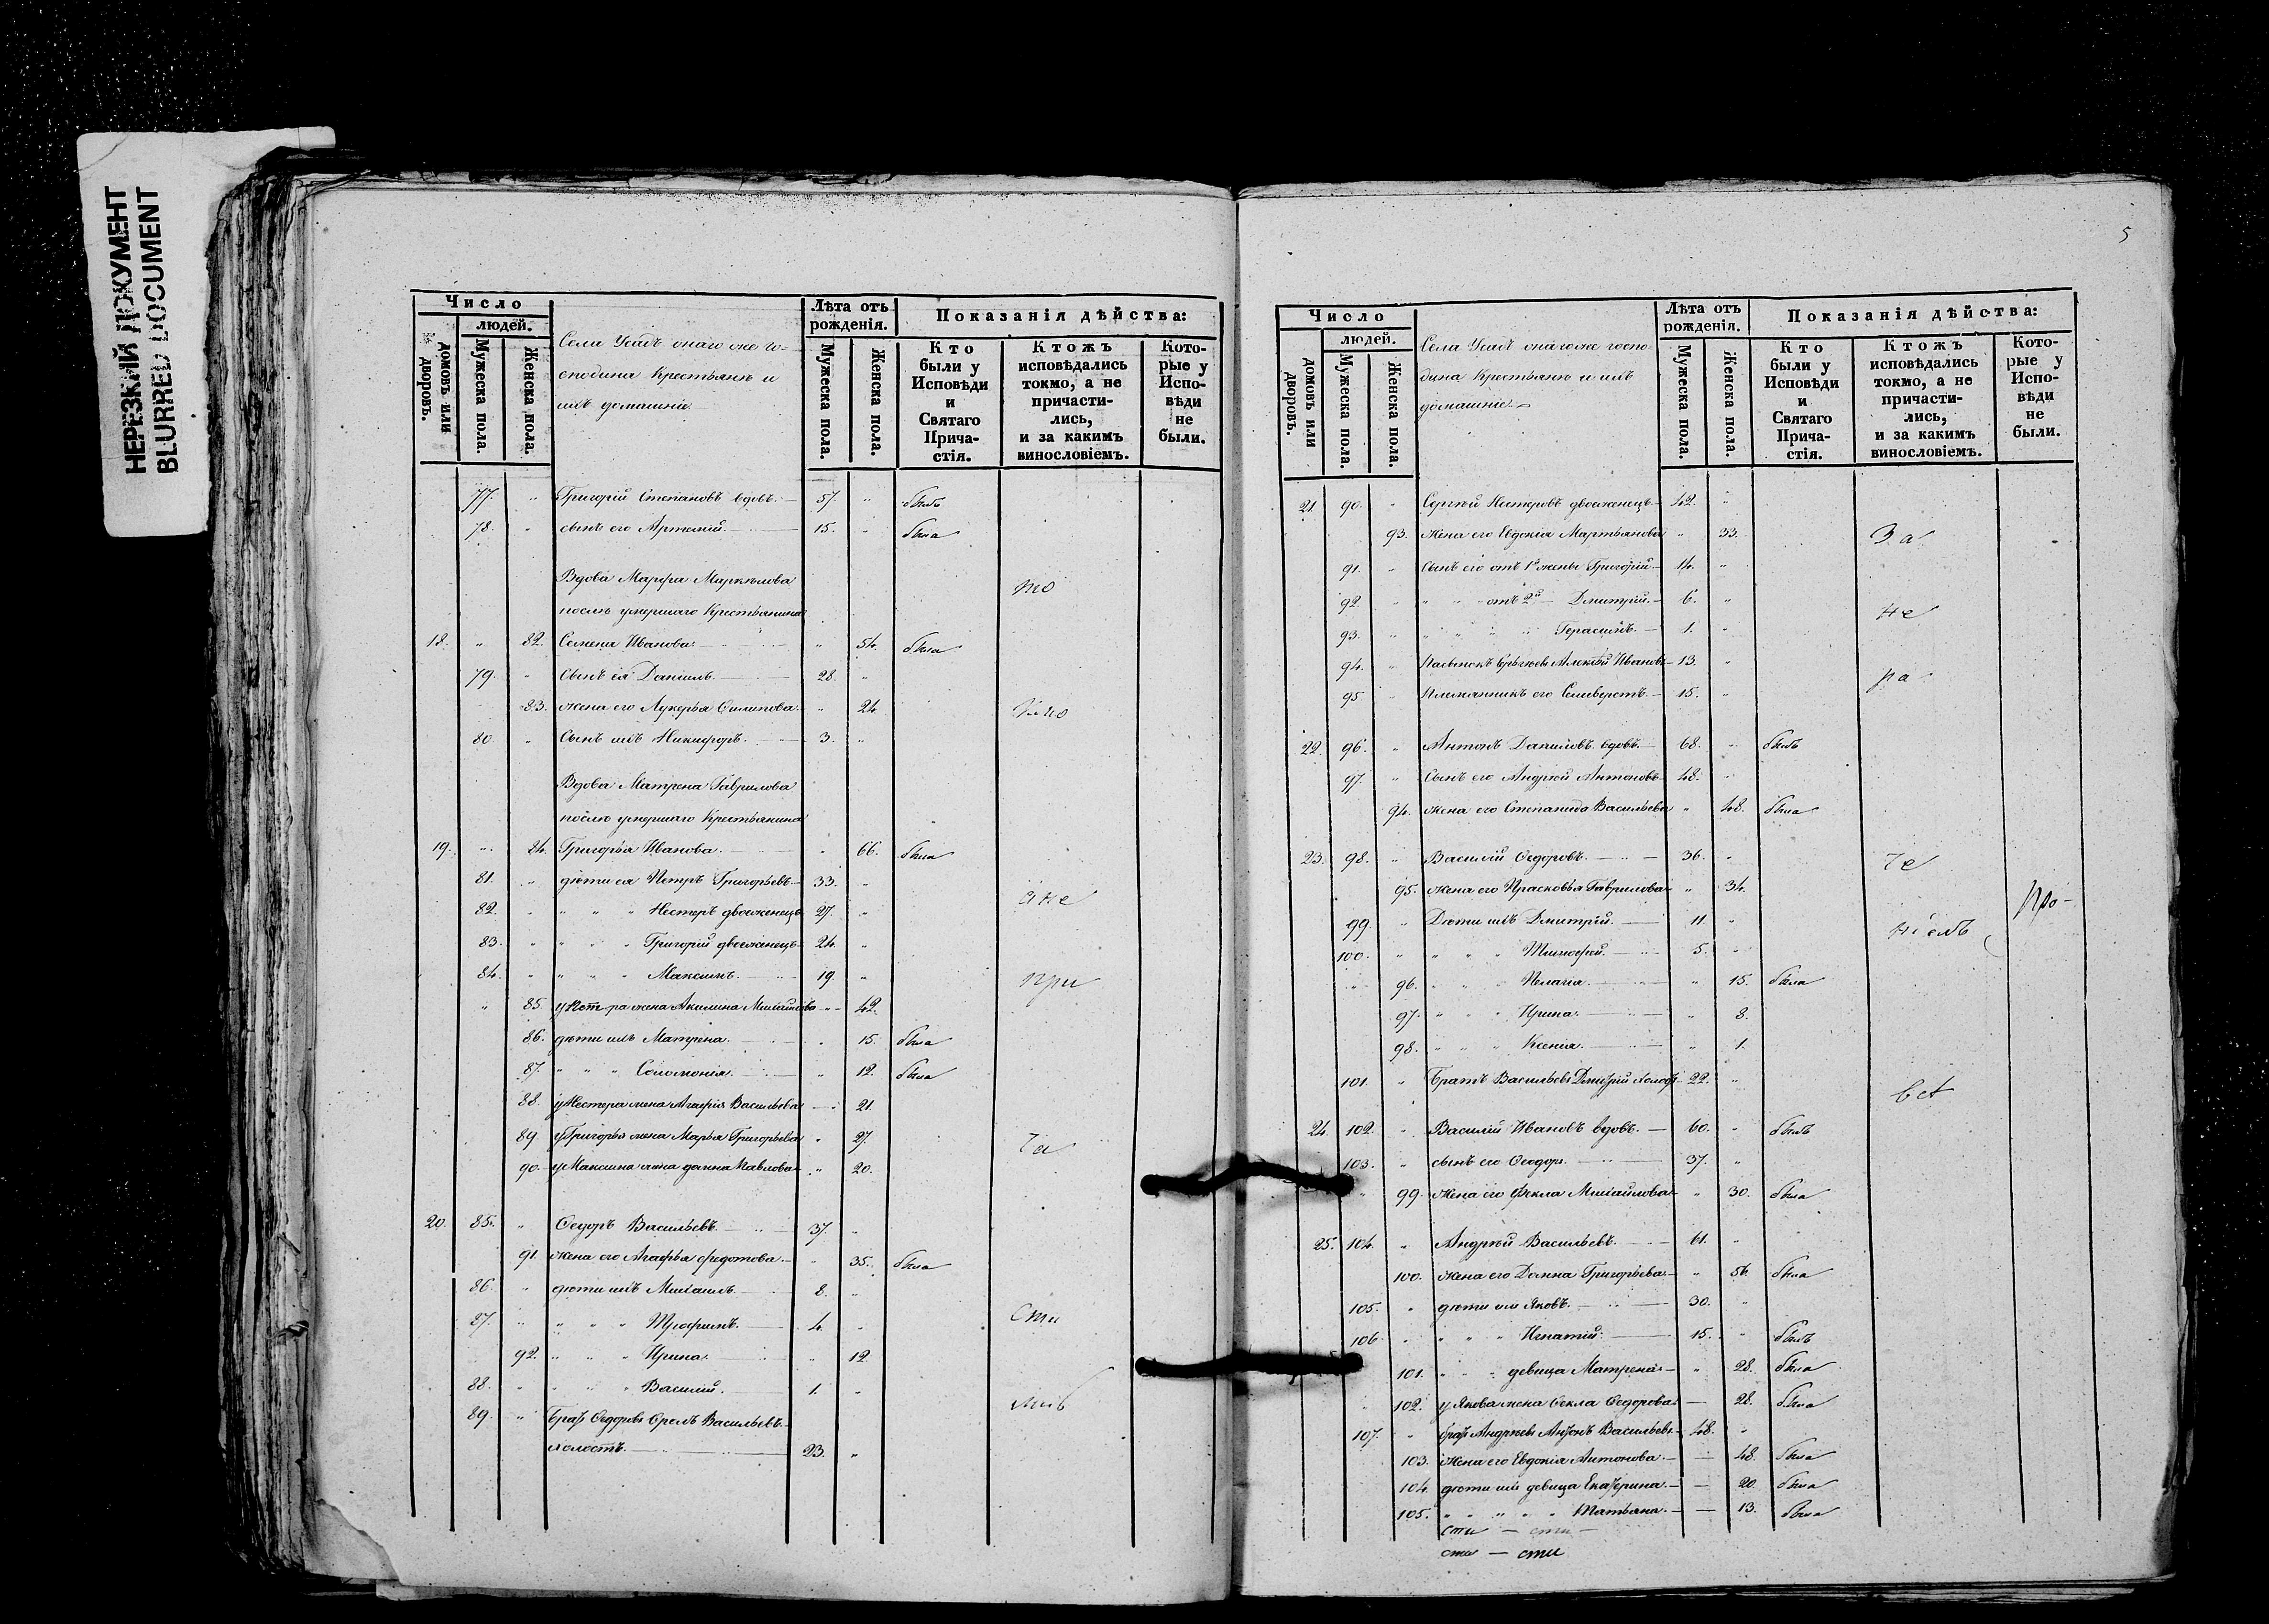 НЕРЕЗКИЙ ДОКУМЕНТ
BLURRED DOCUMENT
Число
людей.
домовъ или дворовъ.
Мужеска пола.
Женска пола.
Села Усадъ онаго же го-
сподина Крестьянъ и
ихъ домашніе
Лѣта отъ рожденія.
Мужеска пола.
Женска пола.
Показанія дѣйства:
Кто были у Исповѣди и Святаго Прича-стія.
Ктожъ исповѣдались токмо, а не причасти-лись, и за какимъ винословіемъ.
Кото-рые у Испо-вѣди не были.
77. " Григорій Степановъ вдовъ. 57. " былъ
78. " сынъ его Артемій 15. " была
Вдова Марфа Маркелова
послѣ умершаго Крестьянина
18. " 82. Семена Иванова " 54. была
79. " Сынъ ея Даніилъ 28. "
83. жена его Лукерья Филипова " 24.
80. " Сынъ ихъ Никифоръ 3. "
Вдова Матрена Гаврилова
послѣ умершаго Крестьянина
19. " 84. Григорья Иванова " 66. была
81. " дѣти ея Петръ Григорьевъ 33. "
82. " " " " Нестеръ двоеженецъ 27. "
83. " " " " Григорій двоеженецъ 24. "
84. " " " " Максимъ 19. "
" 85. у Петра жена Акилина Михайлова " 42.
86. дѣти ихъ Матрена " 15. была
87. " " " Соломонія " 12. была
88. у Нестера жена Агафія Васильева 21.
89 у Григорья жена Марья Григорьева " 27.
90. у Максима жена Домна Павлова " 20.
20. 85. " Ѳедоръ Васильевъ 37. "
91. жена его Агафья Федотова " 35. была
86. " дѣти ихъ Михаилъ 8. "
87. " " " " Трофимъ 4. "
92. " " " Ирина " 12
88. " " " " Василій 1. "
89. " Братъ Ѳедоровъ Ѳролъ Васильевъ
холостъ 23. "
при
ча
сти
5
Число
людей.
домовъ или дворовъ.
Мужеска пола.
Женска пола.
Села Усадъ онаго же госпо
дина Крестьянъ и ихъ
домашніе
Лѣта отъ рожденія.
Мужеска пола.
Женска пола.
Показанія дѣйства:
Кто были у Исповѣди и Святаго Прича-стія.
Ктожъ исповѣдались токмо, а не причасти-лись, и за какимъ винословіемъ.
Кото-рые у Испо-вѣди не были.
21. 90. " Сергѣй Нестеровъ двоеженецъ 42. "
93. жена его Евдокія Мартьянова " 33.
91. " Сынъ его отъ 1й жены Григорій 14. "
92 " " " отъ 2й Дмитрій 6. "
93. " " " " " Герасимъ 1. "
94. " Пасынокъ Сергѣевъ Алексѣй Ивановъ 13. "
95 Племянникъ его Селиверстъ 15. "
22. 96. " Антонъ Даниловъ вдовъ 68. " былъ
97. " Сынъ его Андрей Антоновъ 48. "
94. жена его Степанида Васильева " 48. была
23. 98. " Василій Ѳедоровъ 36. "
95. жена его Прасковья Гаврилова " 34.
99. " Дѣти ихъ Дмитрій 11. "
100. " " " " Тимофей 5. "
96. " " " Пелагія " 15. была
97. " " " Ирина " 8.
98. " " " Ксенія " 1.
101. " Братъ Васильевъ Дмитрій холостъ 22. "
24. 102. " Василій Ивановъ вдовъ 60. " былъ
103. " сынъ его Ѳеодоръ 37. "
" 99. жена его Ѳекла Михайлова " 30. была
25. 104. " Андрей Васильевъ 61. "
100. жена его Домна Григорьева " 56. была
105. " дѣти ихъ Яковъ 30. "
106. " " " " Игнатій 15. " былъ
101. " " " девица Матрена " 28. была
" 102. у Якова жена Ѳекла Ѳедорова 28. была
107. " братъ Андреевъ Антонъ Васильевъ 48. "
103. жена его Евдокія Антонова 48. была
104. дѣти ихъ девица Екатерина 20. была
105. " " " " " Татьяна 13. была
сти — сти —
сти — сти
За
не
ра
че
про-